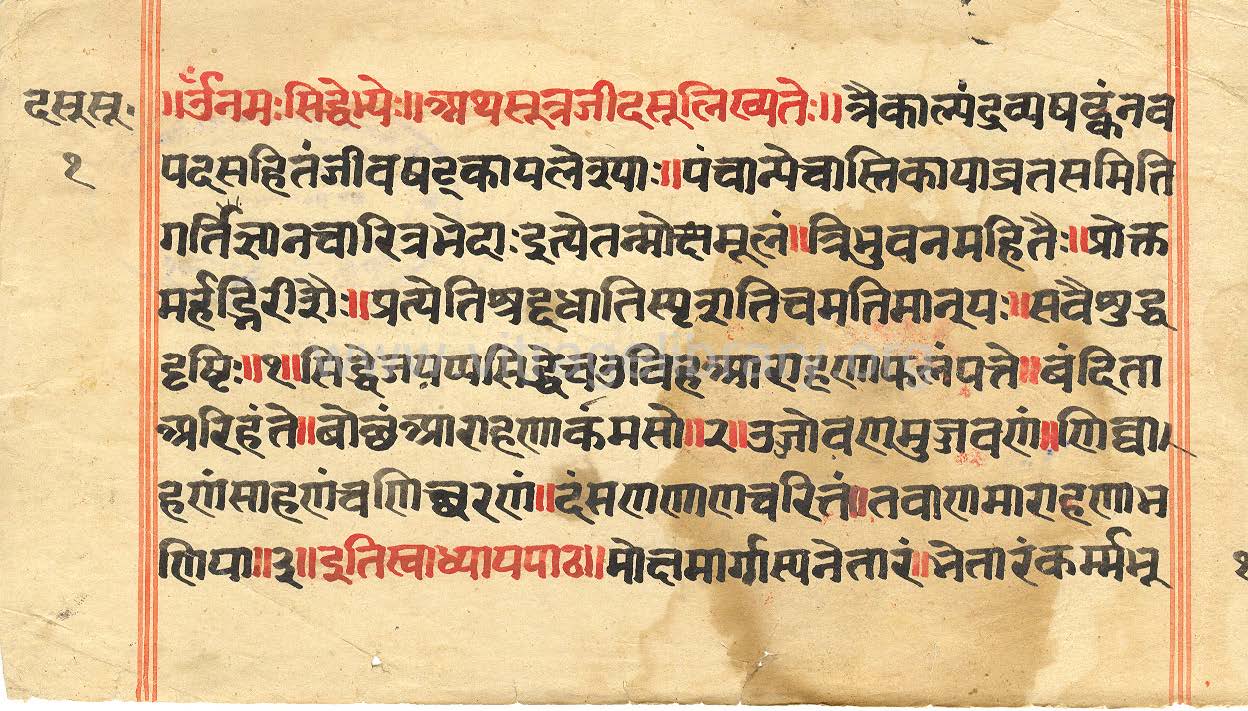 दसूसू॰ ॥ॐनमःसिद्धेभ्येः॥अथसूत्रजीदसूलिख्यतेः॥त्रैकाल्यंद्रव्यषट्कंनव
१ पदसहितंजीवषट्कायलेश्याः॥पंचान्येचास्तिकायाव्रतसमिति
गर्तिज्ञानचारित्रभेदाःइत्येतन्मोक्षमूलं॥त्रिभुवनमहितैः॥प्रोक्त
मर्हद्भिरीशैः॥प्रत्येतिश्रद्दधातिस्पृशतिचमतिमान्यः॥सवैशुद्ध
दृष्टिः॥१॥सिद्धेजयप्पसिद्धेचउविहआराहणाफलंपत्ते॥बंदिता
अरिहंते॥बोछंआराहणाकंमसो॥२॥उज्जोवणमुज्जवणं॥णिव्वा
हणंसाहणंचणिच्छरणं॥दंसणणाणचरित्तं॥तवाणमाराहणाभ
णिया॥३॥इतिस्वाध्यायपाठ॥मोक्षमार्गास्यनेतारं॥भेतारंकर्म्मभू
www.vitragelibrary.org